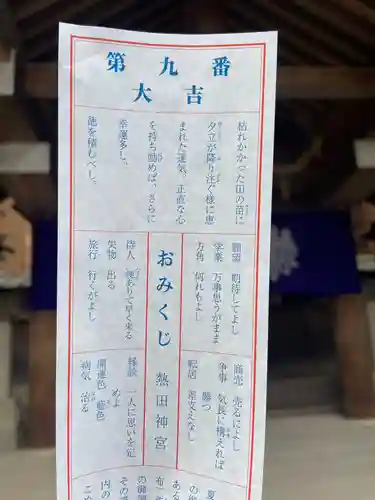 第九番
大吉
枯れかかった田の苗に
夕立が降り注ぐ様に恵
まれた運気。正直な心
を持ち励めば、さらに
幸運多し。
徳を積むべし。
願望 期待してよし
学業 万事思うがまま
方角 何れもよし
おみくじ 熱田神宮
待人 便ありて早く来る
失物 出る
旅行 行くがよし
商売 売るによし
争事 気長に構えれば
勝つ
転居 差支えなし
縁談 一人に思いを定
めよ
開運色 藍色
病気 治る